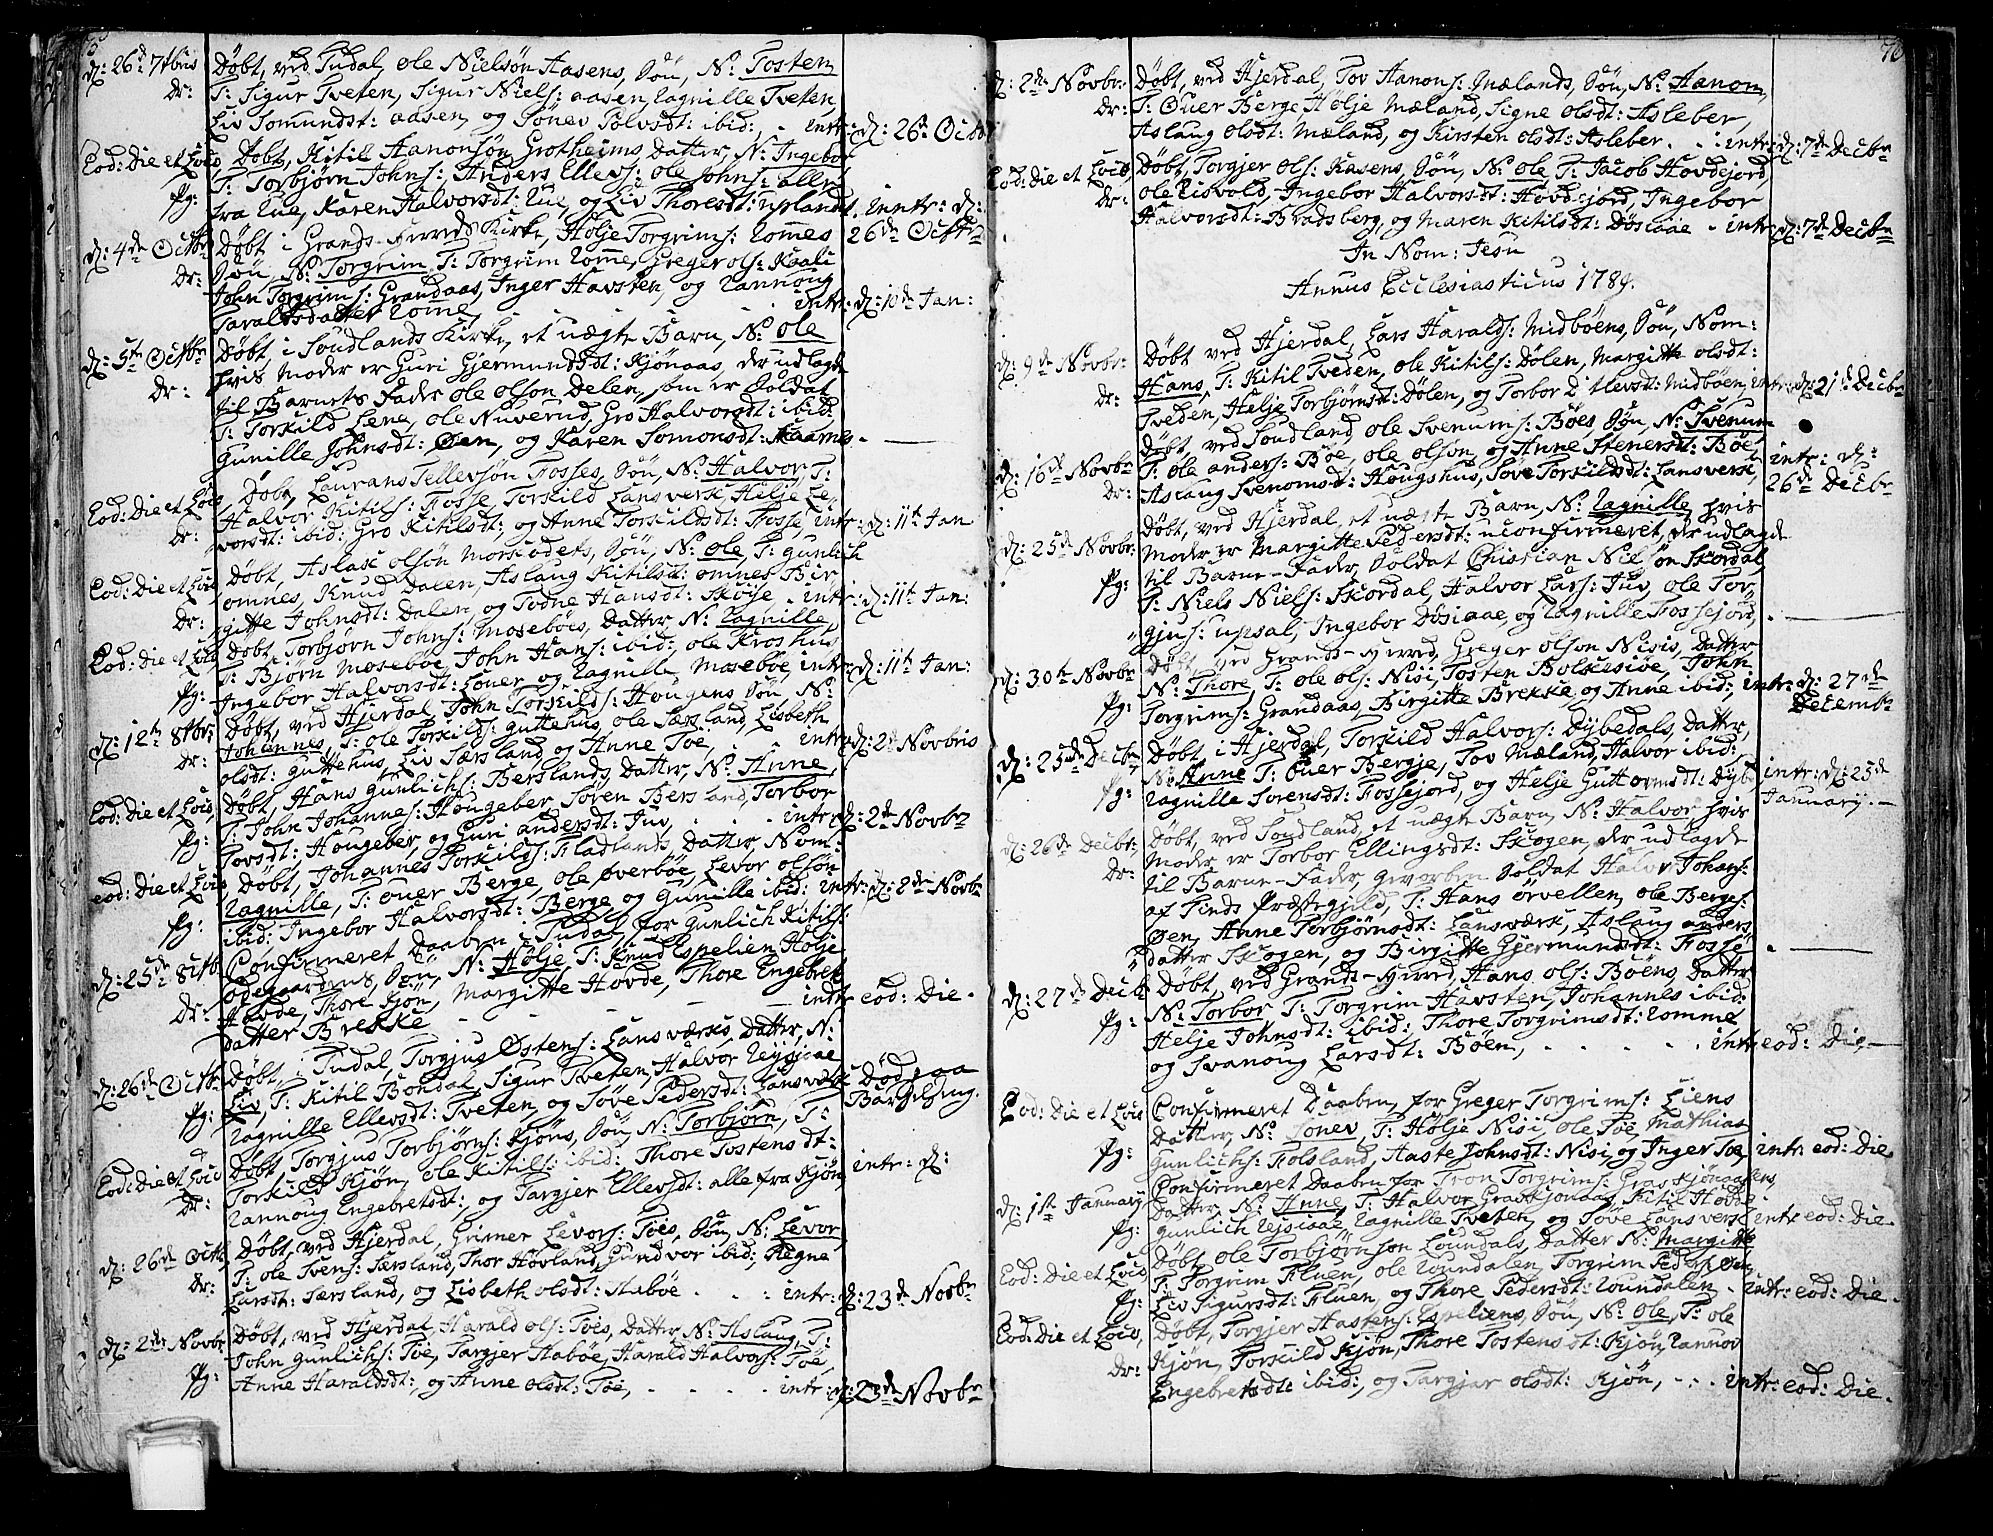 75
d: 26d 7tbris Døbt, ved Tudal, ole Nielsøn Aasens, Søn, N: Tosten
dr: T: Sigur Tveten, Sigur Niels: aasen, Ragnille Tveten,
Liv Tomundsdt: aasen, og Tønev Tolvsdt: ibid: intr: d: 26de Octbr
Eod: Die et Loco, Døbt, Kitil Aanonsøn Grotheims, Datter, N: Ingebor
T: Torbjørn Johns: Anders Ellevs: ole Johns: alle
pg: fra Lue, Karen Halvorsdt: Lue, og Liv Thoresdt: upland, inntr: d:
26de Octbr
d: 4de Octbr Døbt i Grands-Herred Kirke, Hølje Torgrims: Romes
dr: Søn, N: Torgrim, T: Torgrim Romme, Greger ols: Kaali
John Torgrims: Grandaas, Inger Havsten, og Rannoug
Taraldsdatter Rome, intr: d: 10de Jan:
d: 5te Octbr Døbt, i Soudlands Kirke, et uægte Barn, N: ole
dr: hvis Moder er Guri Gjermundsdt: Kjønaas, der udlagde
til Barnets Fader ole olson Delen, som er Soldat
T: Torkild Lene, ole Nuverud, Gro Halvorsdt: ibid:
Gunille Johnsdt: Øen, og Karen Somonsdt: Skaarnes.
Eod: Die et Loco Døbt, Laurans Tellevsøn Fosses, Søn, N: Halvor, T:
Halvor Kitils: Fosse, Torkild Lansverk, Helje Le-
dr: vorsdt: ibid: Gro Kitilsdt: og Anne Torskildsdt: Fosse, intr: d: 11te Jan
Eod: Die et Loco Døbt, Aslak olsøn Morskodets, Søn, N: ole, T: gunlich
omnes, Knud Dalen, Aslaug Kitilsdt: omnes Bir-
dr: gitte Johnsdt: Dalen, og Todne Hansdt: Skoje, intr: d: 11te Jan:
Eod: Die et Loco Døbt, Torbjørn Johns: Mosebøes, Datter, N: Ragnille,
T: Bjørn Mosebøe, John Hans: ibid: ole Kroshus
pg: Ingebor Halvorsdt: Louer, og Ragnille Mosebøe, intr: d: 11te Jan:
d: 12te 8tbr: Døbt, ved Hjerdal, John Torkilds: Hougens Søn, N:
dr: Johannes, T: ole Torkilds: Guttehus, ole Særsland, Lisbeth
olsdt: Guttehus, Liv Særsland, og Anne Toe, intr: d: 2de Novbris
Eod: Die et Loco, Døbt, Hans Gunlichs: Berslands, Datter, N: Anne,
T: John Johannes: Hougeber, Søren Bersland, Torbor
pg: Tovsdt: Hougeber, og Guri andersdt: Juv, intr: d: 2de Novbr
eod: Die et Loco Døbt, Johannes Torkilds: Fladlands, Datter, Nom:
Ragnille, T: ouer Berge, ole øverbøe, Levor olsøn
pg: ibid: Ingebor Halvorsdt: Berge, og Gunille ibid: intr: d: 2de Novbr
d: 25de 8tbr Confirmeret Daaben i Tudal, for Gunlich Kitils:
Ødegaardens, Søn, N: Hølje T: Knud Espelien, Hølje
dr: Hovde, Thore Kjøn, Margitte Hovde, Thore Engebret
datter Brekke intr: eod: Die.
d: 26de Octbr Døbt, i Tudal, Torgjus Østens: Lansværks, Datter, N:
Liv, T: Kitil Bondal, Sigur Tveten, Halvor Rejsjaae
pg: Ragnille Ellevsdt: Tveten, og Søve Pedersdt: Lansværk Død paa
Barselseng.
Eod: Die et Loco Døbt, Torgjus Torbjørns: Kjøns, Søn, N: Torbjørn, T:
Torkild Kjøn, ole Kitils: ibid: Thore Tostensdt:
dr: Rannoug Engebretsdt: og Targjer Ellevsdt: alle fra Kjøn, intr: d:
d: 26de Octbr Døbt, ved Hjerdal, Grimer Levors: Toes, Søn, N: Levor,
T: ole Svens: Særsland, Thor Hovland, Gundvor ibid: Signe
dr: Larsdt: Særsland, og Lisbeth olsdt: Stabøe. intr: d: 23de Novbr
d: 2de Novbr Døbt, ved Hjerdal, Harald ols: Toes, Datter, N: Aslaug, T:
John Gunlichs: Toe, Targjer Stabøe, Harald Halvors: Toe,
pg: Anne Haraldsdt:, og Anne olsdt: Toe, intr: d: 23de Novbr
76
d: 2de Novbr: Døbt, ved Hjerdal, Tov Aanons: Mælands, Søn, N: Aanon,
dr: T: Ouer Berge, Hølje Mæland, Signe olsdt: Asleber,
Aslaug olsdt: Mæland, og Kirsten olsdt: Asleber. intr: d: 7de Decbr
Eod: Die et Loco Døbt, Torgjer ols: Kasens, Søn, N: ole, T: Jacob Hovdejord,
dr: ole Eisvold, Ingebor Halvorsdt: Hovdejord, Ingebor
Halvorsdt: Bradsberg, og Maren Kitilsdt: Døsiaae. intr: d: 7de Decbr
In Nom: Jesu
Annus Ecclesiasticus 1789.
d: 9de Novbr: Døbt ved Hjerdal, Lars Haralds: Midbøens, Søn, Nom:
Hans, T: Kitil Tveden, ole Kitils: Dølen, Margitte olsdt:
dr: Tveden, Helje Torbjørnsdt: Dølen, og Torbor Ditlevsdt: Midbøen, intr: d: 21de Decbr
d: 16de Novbr Døbt, ved Soudland, ole Svenums: Bøes, Søn, N: Svenum
T: ole anders: Bøe, ole olson, og Anne Stenersdt: Bøe,
dr: Aslaug Svenomsdt: Hougshus, Søve Torkildsdt: Lansverk, intr: d:
26de Decbr
d: 25de Novbr: Døbt, ved Hjerdal, et uægte Barn, N: Ragnille, hvis
Moder er Margitte Pedersdt: uconfirmeret, der udlagde
pg: til Barne-Fader, Soldat Christian Nilsøn Skordal,
T: Niels Niels: Skordal, Halvor Lars: Juv, ole Tor-
gjus: upsal, Ingebor Døsiaae, og Ragnille Fossejord,
d: 30te Novbr Døbt, ved Grands-Herred, Greger olson Nisis, Datter
N: Thore, T: ole ols: Nisi, Tosten Bolkusive, John
pg: Torgrims: Grandaas, Birgitte Brekke, og Anne ibid: intr: d: 27de
Decembr
d: 25de Decbr Døbt, i Hjerdal, Torskild Halvors: Dybedals, Datter,
N: Anne T: Ouer Bergje, Tov Mæland, Halvor ibid:
pg: Ragnille Sorensdt: Fossejord, og Helje Guttormsdt: Dybd: intr: d: 25de
January.
d: 26de Decbr: Døbt, ved Soudland, et uægte Barn, N: Halvor, hvis
Moder er Torbor Ellingsdt: Skogen, der udlagde
dr: til Barne-Fader, Geworben Soldat Halvor Johans:
af Tinds Præstegjeld, T: Hans Ørvellen, ole Berges:
Øen, Anne Torbjørnsdt: Lansværk, Aslaug anders
datter Skogen, og Birgitte Gjermundsdt: Fosse
d: 27de Decbr Døbt, ved Grands-Herred, Hans ols: Bøens, Datter
pg: N: Torbor T: Torgrim Havsten, Johannes ibid:
Helje Johnsdt: ibid: Thore Torgrimsdt: Romme
og Svanoug Larsdt: Bøen, intr: eod: Die,
Eod: Die et Loco Confirmeret Daaben, for Greger Torgrims: Liens
Datter, N: Sonev, T: Hølje Nisi, ole Toe, Mathias
pg: Gunlichs: Folsland, Aaste Johnsdt: Nisi, og Inger Toe, intr: eod: Die
d: 1ste January Confirmeret Daaben for Tron Torgrims: Graskjønaasens,
Datter, N: Anne, T: Halvor Graskjonaas, Kitil Hovde
pg: Gunlich Rejsiaae, Ragnille Tveten, og Søve Lansverk intr: eod: Die
Eod: Die et Loco, Døbt, ole Torbjørnson Loundals, Datter N: Margitte
T: Torgrim Fluen, ole Roundalen, Torgrim Peders: Øen
pg: Liv Sigursdt: Fluen, og Thore Pedersdt: Roundalen. intr: eod: Die.
Eod: Die et Loco, Døbt, Torgjer Hastens: Espeliens, Søn, N: Ole, T: ole
Kjøn, Torskild Kjøn, Thore Tostensdt: Kjøn, Rannov
dr: Engebretsdt: ibid:, og Targjær olsdt: Kjøn, intr: eod: Die.